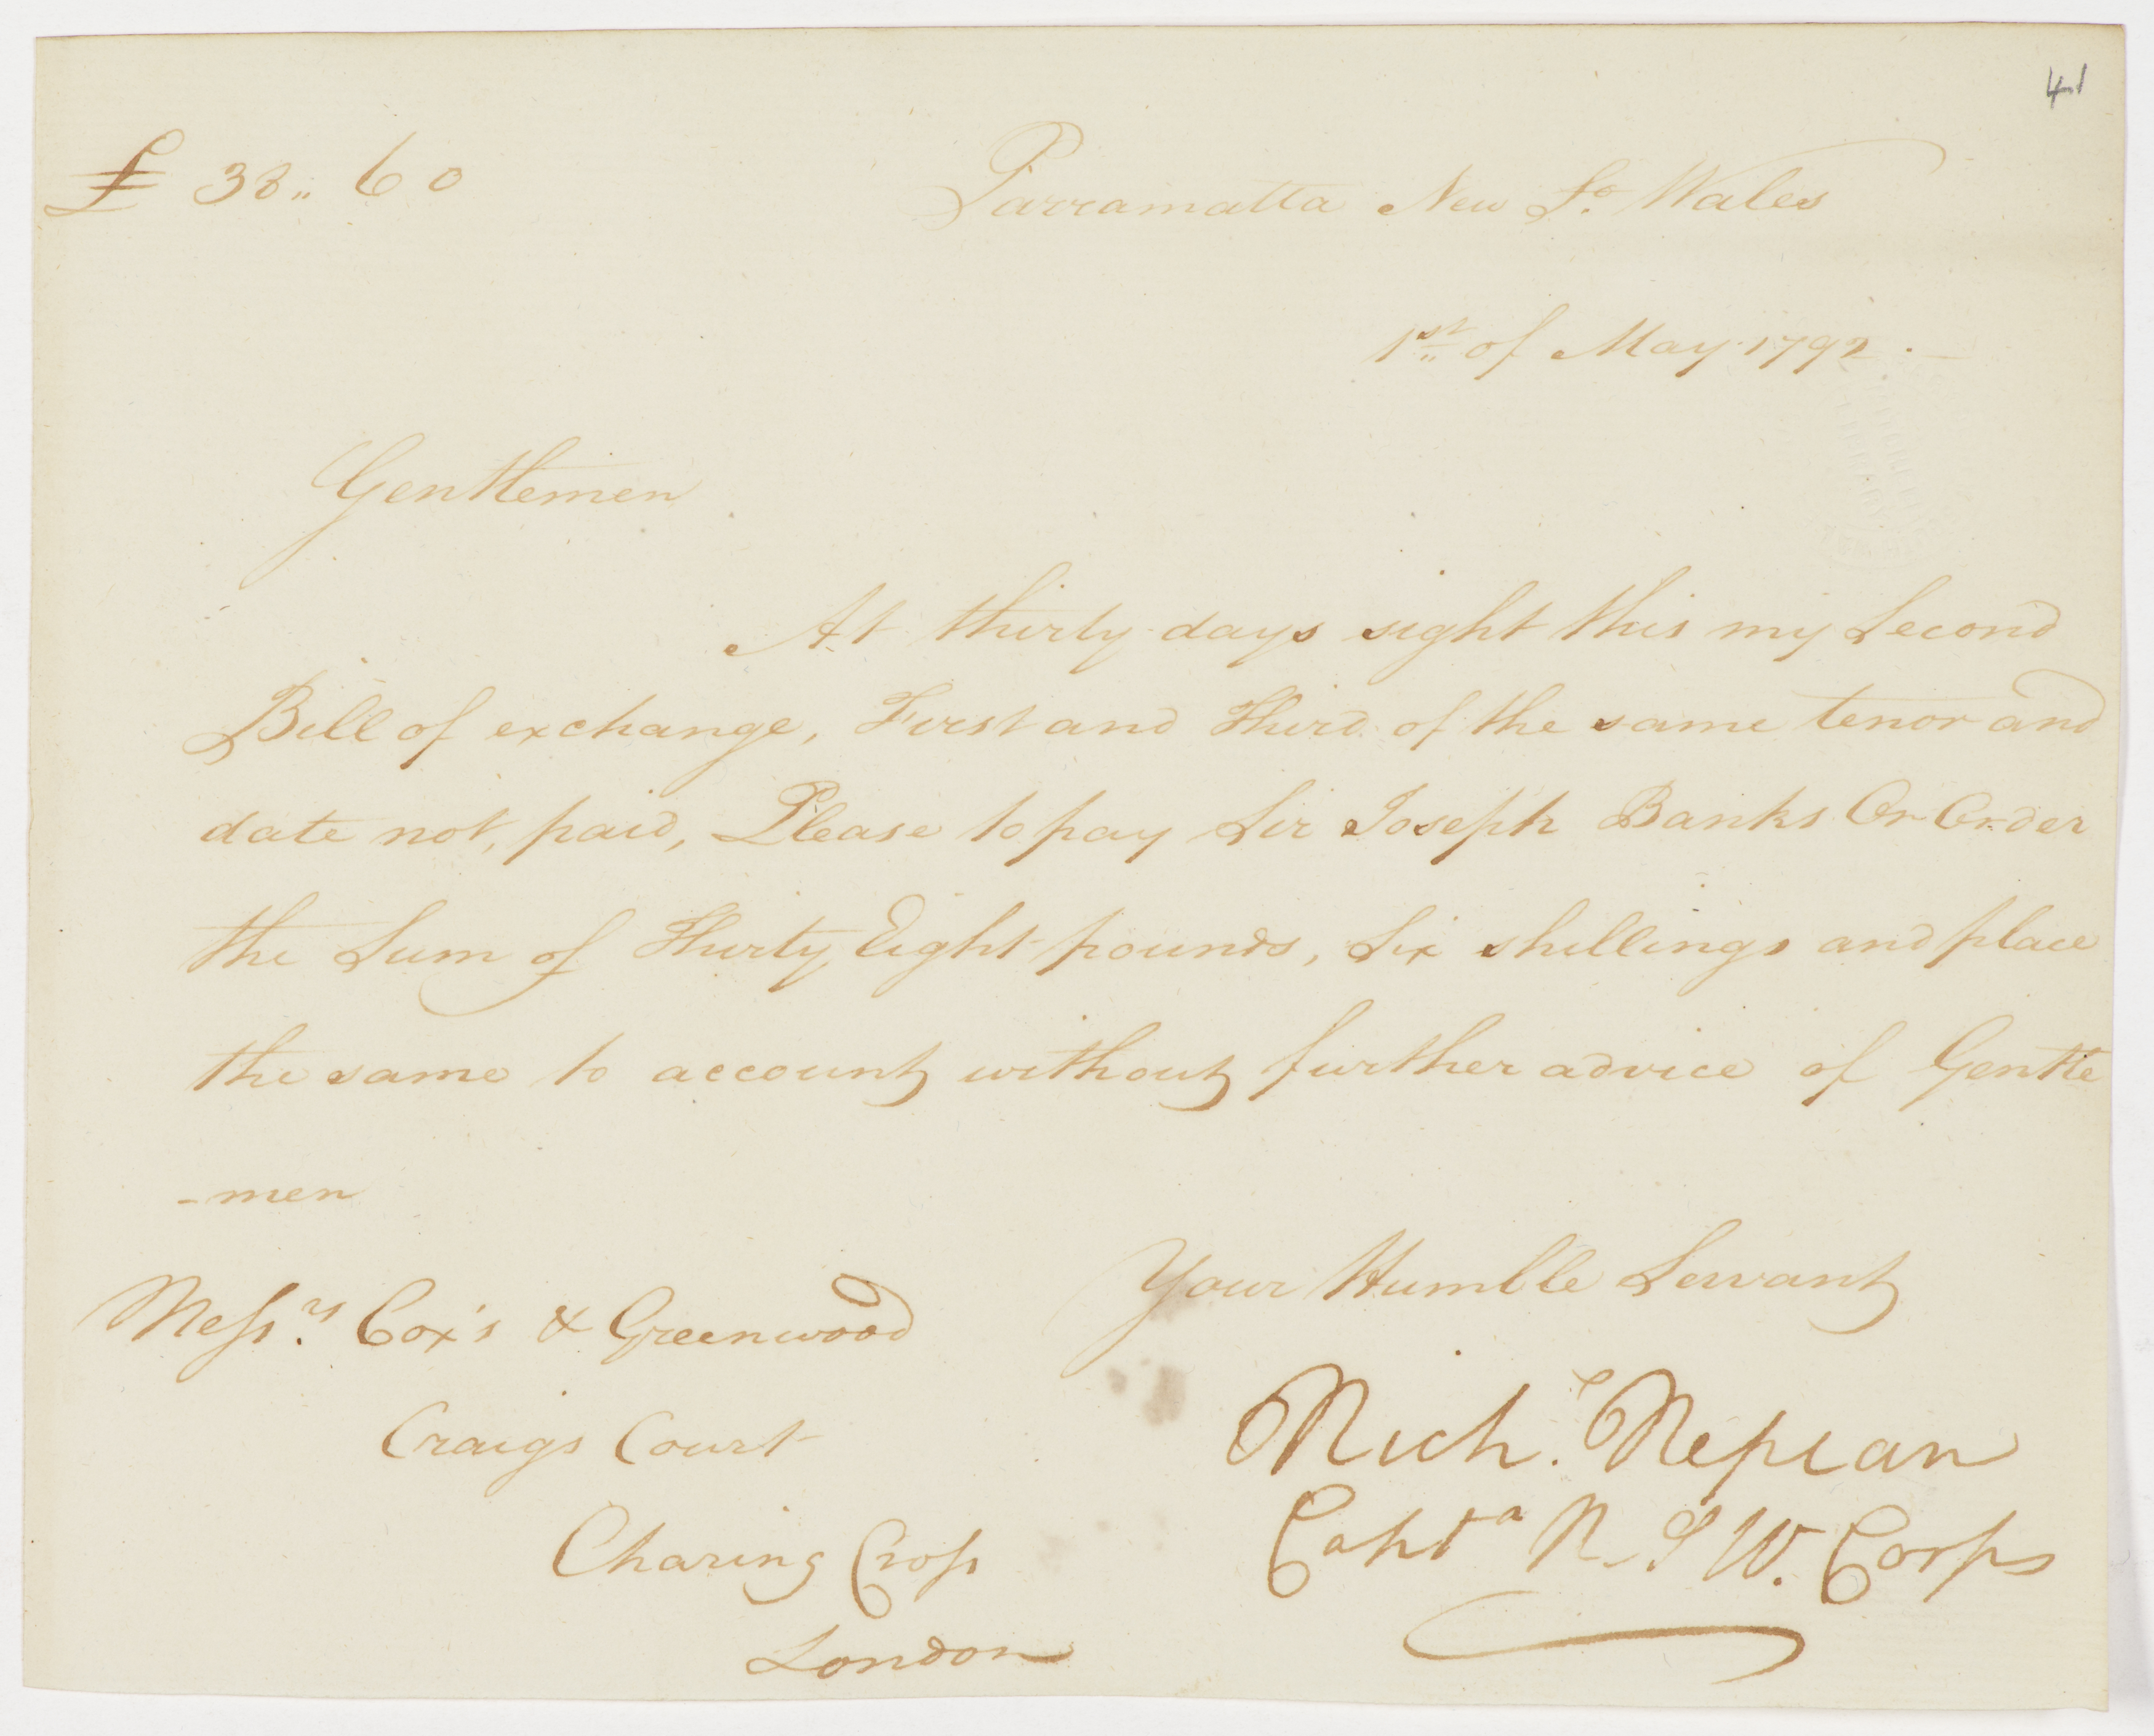 41
£ 38.. 6 0
Parramatta New So. Wales
1st. of May 1792 . —
Gentlemen
At thirty days sight this my Second
Bill of exchange, First and Third of the same tenor and
date not, paid, Please to pay Sir Joseph Banks Or Order
the Sum of Thirty Eight pounds, Six shillings and place
the same to account without further advice of Gentle
-men
Your Humble Servant
Messrs. Cox's & Greenwood
Craigs Court
Charing Cross
London
Richd. Nepean
Captn N. S W. Corps